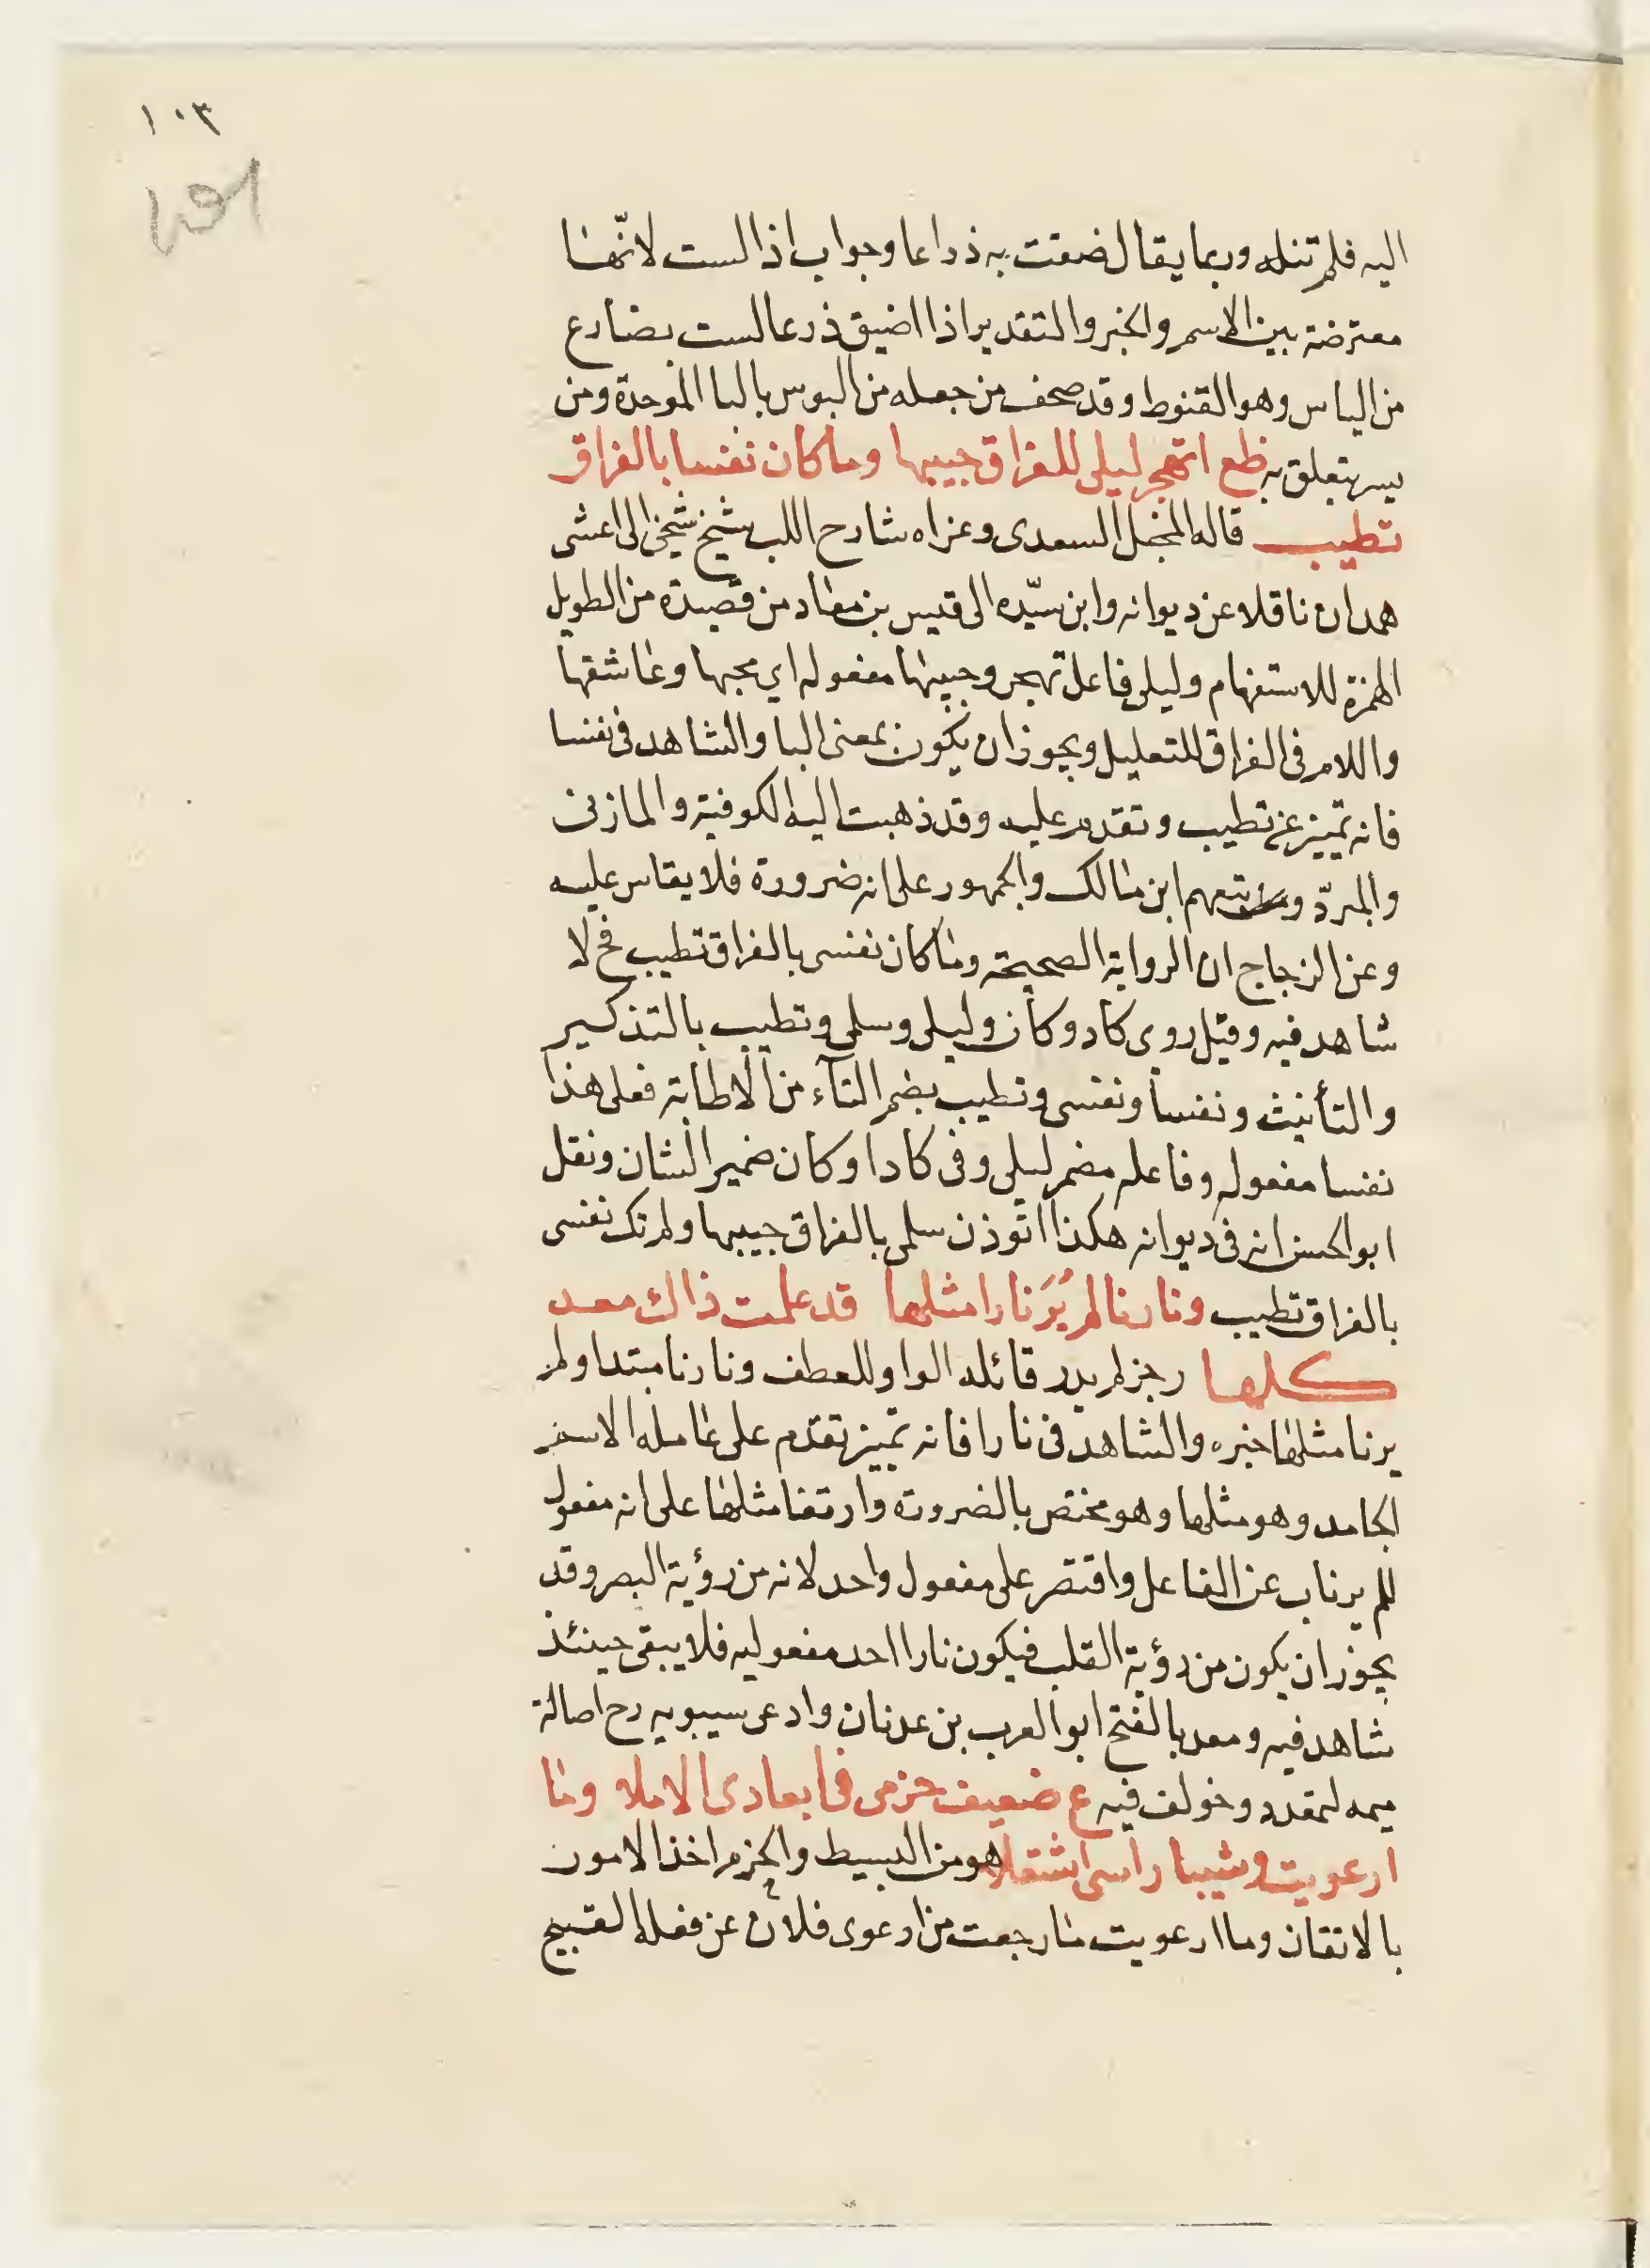 ١٠٣
اليه فلم تنله وربما يقال ضقت به ذراعا وجواب اذا لست لانّها
معترضة بين الاسم والخبر والتقدير اذا اضيق ذرعا لست بضارع
من الياس وهو القنوط وقد صحف من جعله من البوس بالبا الموحدة ومن
يسر يتعلق به ظع اتهجر ليلى للفراق حبيبها وما كان نفسا بالفراق
تطيب قاله المخبل السعدى وعزاه شارح اللب شيخ شيخى الى اعشى
همدان ناقلا عن ديوانه وابن سيّده الى قيس بن معاد من قصيدة من الطويل
الهمزة للاستفهام وليلى فاعل تهجر وحبيبها مفعوله اي محبها وعاشقها
واللام فى الفراق للتعليل ويجوز ان يكون بمعنى البا والشاهد فى نفسا
فانه تمييز عن تطيب وتقدم عليه وقد ذهبت اليه الكوفية والمازنى
والمبرّد وتبعهم ابن مالك والجمهور على انه ضرورة فلا يقاس عليه
وعن الزجاج ان الرواية الصحيحة وما كان نفسى بالفراق تطيب فح لا
شاهد فيه وقيل روى كاد وكان وليلى وسلمى وتطيب بالتذكير
والتأنيث ونفسا ونفسى وتطيب بضم التآء من الاطابة فعلى هذا
نفسا مفعوله وفاعله مضمر ليلى وفى كاد او كان ضمير الشان ونقل
ابو الحسن انه فى ديوانه هكذا اتوذن سلمى بالفراق حبيبها ولم تك نفسى
بالفراق تطيب ونارنا لم يُرَ نارا مثلها قد علمت ذاك معد
كلها رجز لم يدر قائله الواو للعطف ونارنا مبتدا ولم
ير نا مثلها خبره والشاهد فى نارا فانه تمييز تقدم على عامله الاسم
الجامد وهو مثلها وهو مختص بالضرورة وارتفا مثلها على انه مفعول
للم ير ناب عن الفاعل واقتصر على مفعول واحد لانه من رؤية البصر وقد
يجوز ان يكون من رؤية القلب فيكون نارا احد مفعوليه فلا يبقى حينئذ
شاهد فيه ومعد بالفتح ابو العرب بن عدنان وادعى سيبويه رح اصالة
ميمه لتمعدد وخولف فيه ع ضيعت حزمى فى ابعادى الاملا وما
ارعويت وشيبا راسى اشتعلا هو من البسيط والحزم اخذ الامور
بالاتقان وما ارعويت ما رجعت من ارعوى فلان عن فعله القبيح